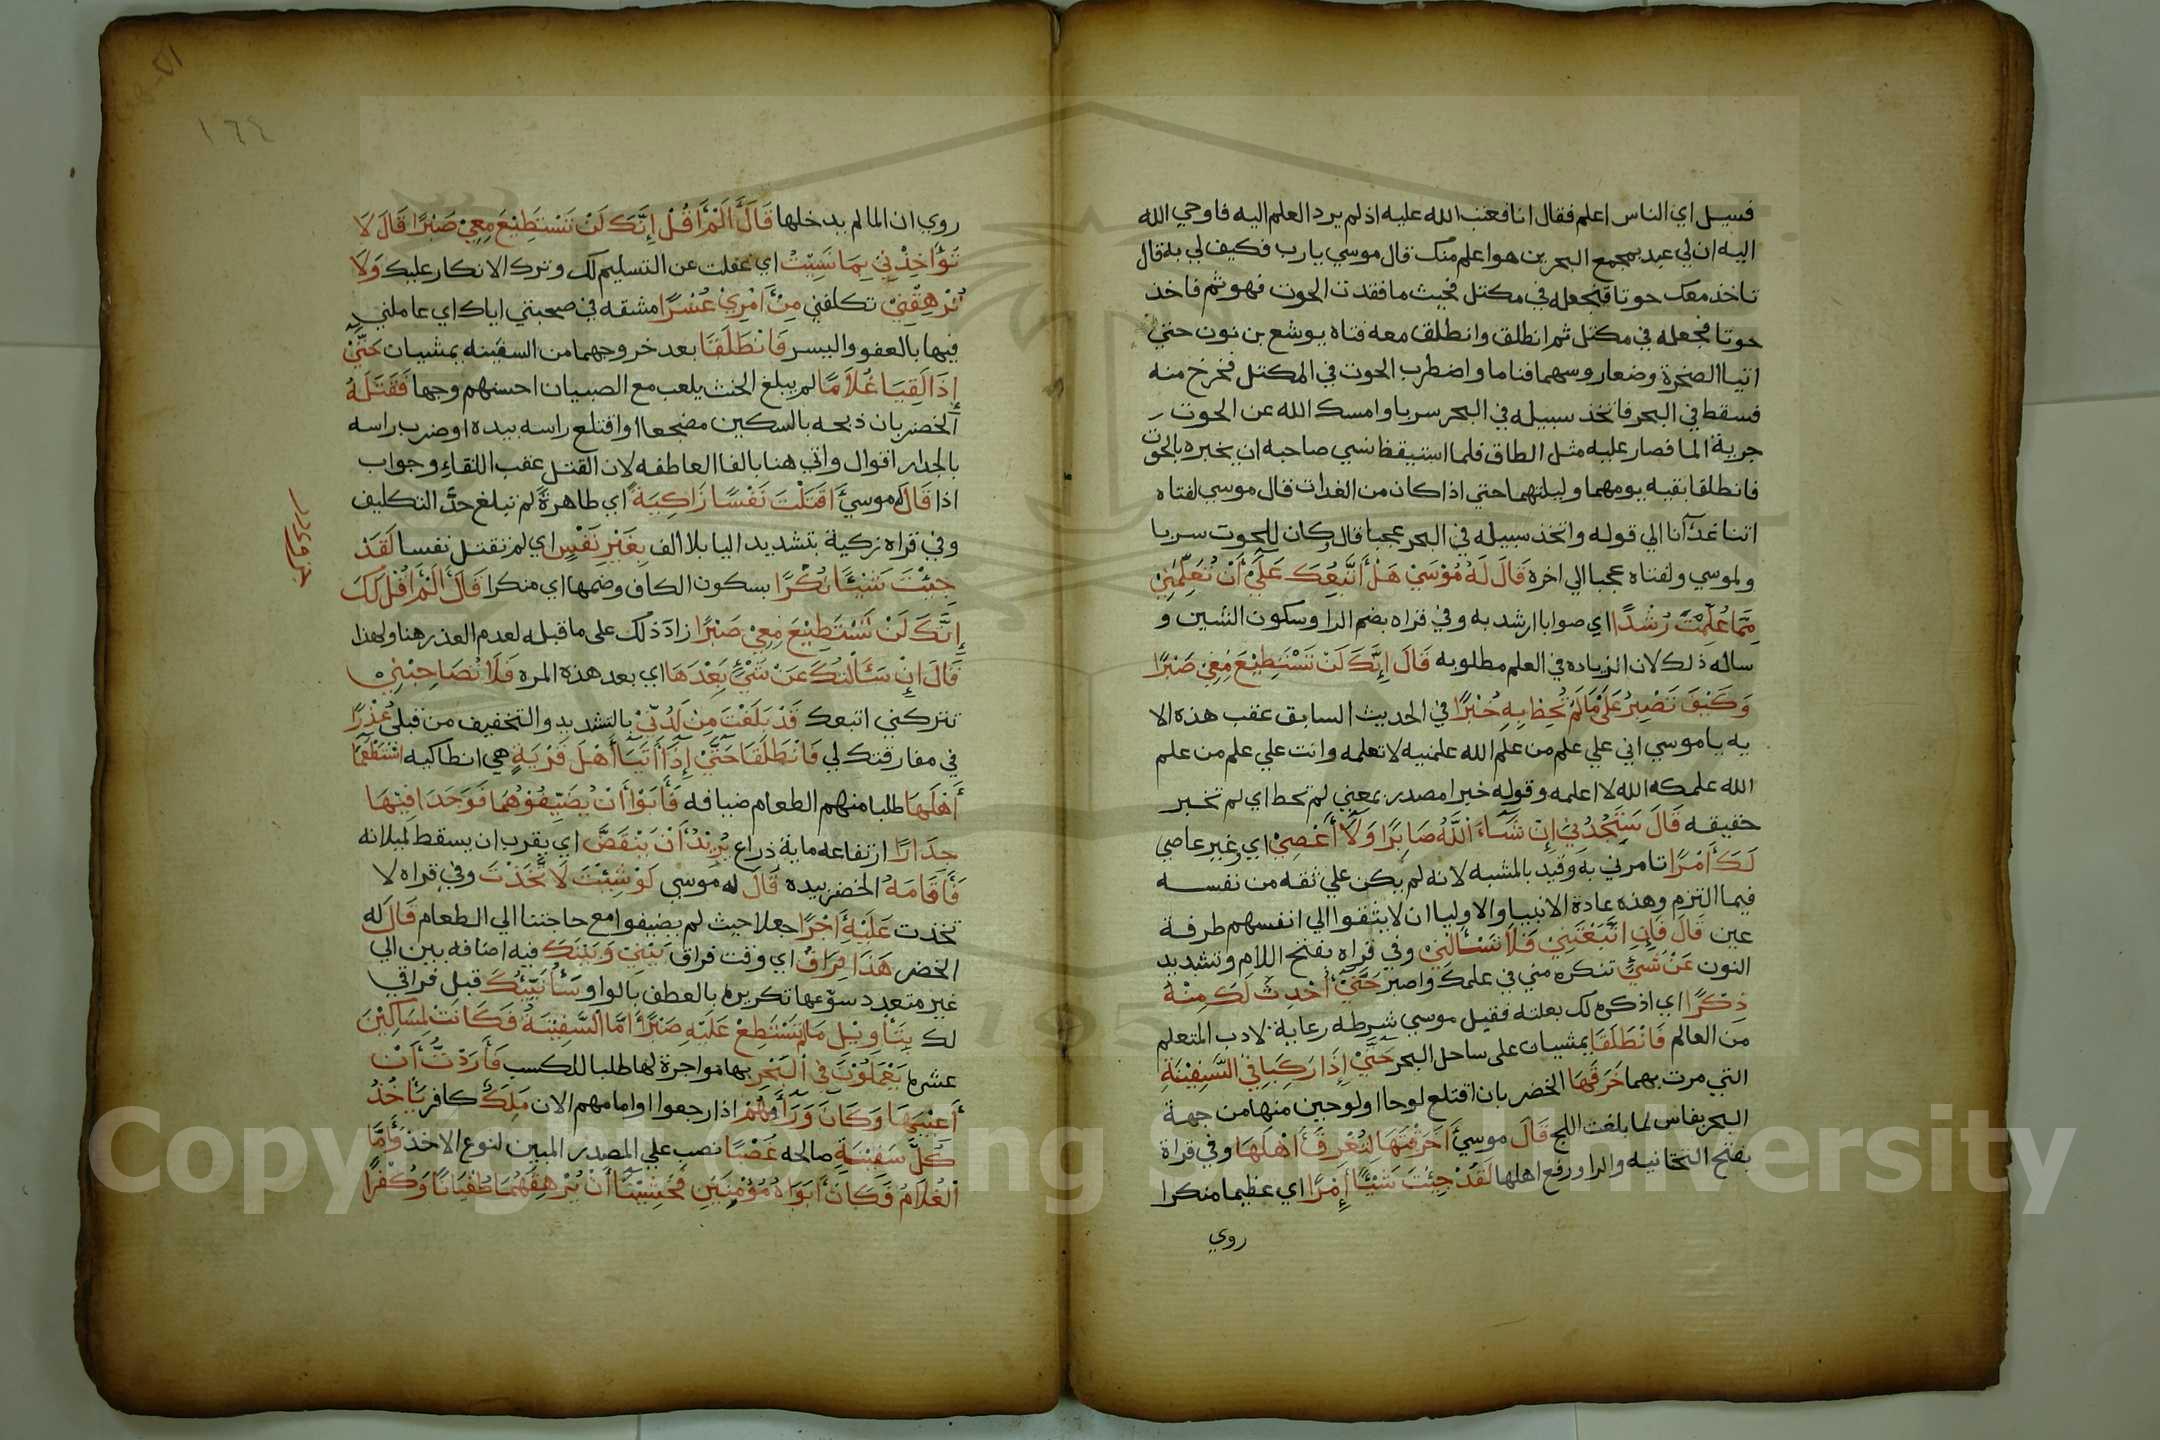 فسيل اي الناس اعلم فقال انا فعتب الله عليه اذ لم يرد العلم اليه فاوحي الله
اليه ان لي عبد بمجمع البحرين هو اعلم منك قال موسي يارب فكيف لي به قال
تاخذ معك حوتا فتجعله في مكتل فحيث ما فقدت الحوت فهو ثم فاخذ
حوتا فجعله في مكتل ثم انطلق وانطلق معه فتاه يوشع بن نون حتي
اتيا الصخرة وضعا روسهما فناما واضطرب الحوت في المكتل فخرج منه
فسقط في البحر فاتخذ سبيله في البحر سربا وامسك الله عن الحوت
جرية الما فصار عليه مثل الطاق فلما استيقظ نسي صاحبه ان يخبره بالحوت
فانطلقا بقيه يومهما وليلتهما حتي اذا كان من الغدات قال موسي لفتاه
اتنا غدآنا الي قوله واتخذ سبيله في البحر عجبا قال وكان للحوت سربا
ولموسي ولفتاه عجبا الي اخره قَالَ لَهُ مُوْسَيْ هَلْ أَتَّبِعُكَ عَلَيْ أَنْ تُعَلِّمَنِيْ
مِمَّا عُلِّمْتَ رُشْدًا اي صوابا ارشد به وفي قراه بضم الرا وسكون الشين و
ساله ذلك لان الزياده في العلم مطلوبه قَالَ إِنَّكَ لَنْ تَسْتَطِيْعَ مَعِيْ صَبْرًا
وَكَيْفَ تَصْبِرُ عَلَيْ مَا لَمْ تُحِطْ بِهِ خُبْرًا في الحديث السابق عقب هذه الا
يه يا موسي اني علي علم من علم الله علمنيه لا تعلمه وانت علي علم من علم
الله علمكه الله لا اعلمه وقوله خبرا مصدر بمعني لم تحط اي لم تخبر
حقيقه قَالَ سَتَجِدُنِيْ إِنْ شَآءَ اللَّهُ صَابِرًا وَلَآ أَعْصِيْ اي وغير عاصي
لَكَ أَمْرًا تامرني به وقيد بالمشيه لانه لم يكن علي ثقه من نفسه
فيما التزم وهذه عادة الانبيا والاوليا ان لا يثقوا الي انفسهم طرفة
عين قَالَ فَإِنِ اتَّبَعْتَنِيْ فَلَا تَسْأَلْنِيْ وفي قراه بفتح اللام وتشديد
النون عَنْ شَيْءٍ تنكره مني في علمك واصبر حَتَّيْ أُحْدِثَ لَكَ مِنْهُ
ذِكْرًا اي اذكره لك بعلته فقيل موسي شرطه رعاية لادب المتعلم
من العالم فَانْطَلَقَا يمشيان على ساحل البحر حَتَّيْ إِذَا رَكِبَا فِي السَّفِيْنَةِ
التي مرت بهما خَرَقَهَا الخضر بان اقتلع لوحا او لوحين منها من جهة
البحر بفاس لما بلغت اللج قَالَ موسيٰ أَخَرَقْتَهَا لِتُغْرِقَ أَهْلَهَا وفي قراة
بفتح التحتانيه والرا ورفع اهلها لَقَدْ جِئْتَ شَيْئًا إِمْرًا اي عظيما منكرا
روي
١٦٤
روي ان الما لم يدخلها قَالَ أَلَمْ أَقُلْ إِنَّكَ لَنْ تَسْتَطِيْعَ مَعِيْ صَبْرًا قَالَ لَا
تُؤَاخِذْنِيْ بِمَا نَسِيْتُ اي غفلت عن التسليم لك وترك الانكار عليك وَلَا
تُرْهِقْنِيْ تكلفني مِنْ أَمْرِيْ عُسْرًا مشقه في صحبتي اياك اي عاملني
فيها بالعفو واليسر فَانْطَلَقَا بعد خروجهما من السفينه يمشيان حَتَّيْ
إِذَا لَقِيَا غُلَامًا لم يبلغ الحنث يلعب مع الصبيان احسنهم وجها فَقَتَلَهُ
الخضر بان ذبحه بالسكين مضجعا او اقتلع راسه بيده او ضرب راسه
بالجدار اقوال واتي هنا بالفا العاطفه لان القتل عقب اللقاء وجواب
اذا قَالَ له موسيٰ أَقَتَلْتَ نَفْسًا زَاكِيَةً اي طاهرةً لم تبلغ حدَّ التكليف
وفي قراه زكية بتشديد اليا بلا الف بِغَيْرِ نَفْسٍ اي لم تقتل نفسا لَقَدْ
جِئْتَ شَيْئًا نُكْرًا بسكون الكاف وضمها اي منكرا قَالَ أَلَمْ أَقُلْ لَكَ
إِنَّكَ لَنْ تَسْتَطِيْعَ مَعِيْ صَبْرًا زادَ ذلك على ما قبله لعدم العذر هنا ولهذا
قَالَ إِنْ سَأَلْتُكَ عَنْ شَيْءٍ بَعْدَهَا اي بعد هذه المره فَلَا تُصَاحِبْنِيْ
تتركني اتبعك قَدْ بَلَغْتَ مِنْ لَدُنِّيْ بالتشديد والتخفيف من قبلي عُذْرًا
في مفارقتك لي فَانْطَلَقَا حَتَّيْ إِذَا أَتَيَا أَهْلَ قَرْيَةٍ هي انطاكيه اسْتَطْعَمَا
أَهْلَهَا طلبا منهم الطعام ضيافه فَأَبَوْا أَنْ يُضَيِّفُوْهُمَا فَوَجَدَا فِيْهَا
جِدَارًا ارتفاعه ماية ذراع يُرِيْدُ أَنْ يَنْقَضَّ اي يقرب ان يسقط لميلانه
فَأَقَامَهُ الخضر بيده قَالَ له موسي لَوْ شِئْتَ لَاتَّخَذْتَ وفي قراه لا
تخذت عَلَيْهِ أَجْرًا جعلا حيث لم يضيفوا مع حاجتنا الي الطعام قَالَ له
الخضر هَذَا فِرَاقُ اي وقت فراق بَيْنِيْ وَبَيْنِكَ فيه اضافه بين الي
غير متعدد سوّغها تكريره بالعطف بالواو سَأُنَبِّئُكَ قبل فراقي
لك بِتَأْوِيْلِ مَا لَمْ تَسْتَطِعْ عَلَيْهِ صَبْرًا أَمَّا السَّفِيْنَةُ فَكَانَتْ لِمَسَاكِيْنَ
عشره يَعْمَلُوْنَ فِي الْبَحْرِ بها مواجرة لها طلبا للكسب فَأَرَدْتُّ أَنْ
أَعِيْبَهَا وَكَانَ وَرَآءَهُمْ اذا رجعوا او امامهم الان مَلِكٌ كافر يَأْخُذُ
كُلَّ سَفِيْنَةٍ صالحه غَصْبًا نصب علي المصدر المبين لنوع الاخذ وَأَمَّا
الْغُلَامُ فَكَانَ أَبَوَاهُ مُؤْمِنَيْنِ فَخَشِيْنَا أَنْ يُرْهِقَهُمَا طُغْيَانًا وَكُفْرًا
Copyright © King Saud University